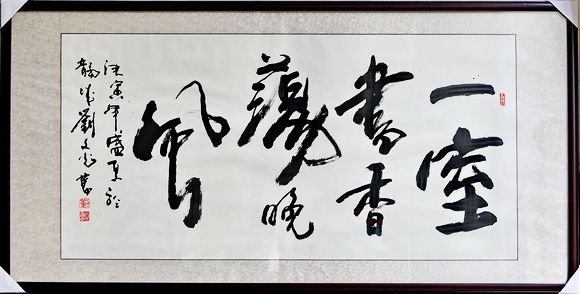 一室
書香
蕩晚
風
庚寅年盛夏於
龍城劉文書